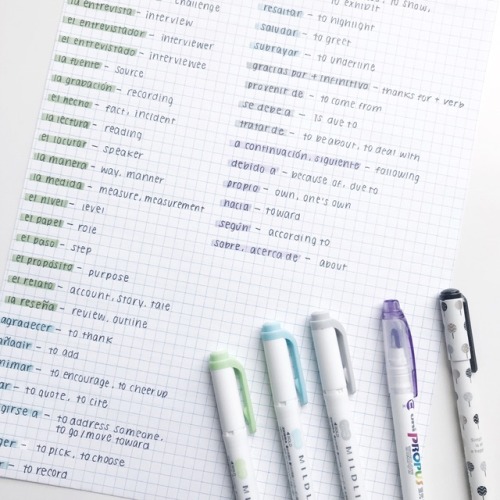 - challenge
la entrevista - interview
el entrevistador - interviewer
el entrevistado - interviewee
la fuente - source
la grabación - recording
el hecho - fact, incident
la lectura - reading
el locutor - speaker
la manera - way, manner
la medida - measure, measurement
el nivel - level
el papel - role
el paso - step
el propósito - purpose
el relato - account, story, tale
la reseña - review, outline
agradecer - to thank
añadir - to add
nimar - to encourage, to cheer up
ar - to quote, to cite
girse a - to address someone,
to go/move toward
ger - to pick, to choose
- to record
to show,
to exhibit
resaltar - to highlight
saludar - to greet
subrayar - to underline
gracias por + infinitivo - thanks for + verb
provenir de - to come from
se debe a - is due to
tratar de - to be about, to deal with
a continuación, siguiente - following
debido a - because of, due to
propio - own, one's own
hacia - toward
según - according to
sobre, acerca de - about
MILDLI
MILDLI
MILDLI
PROPUS